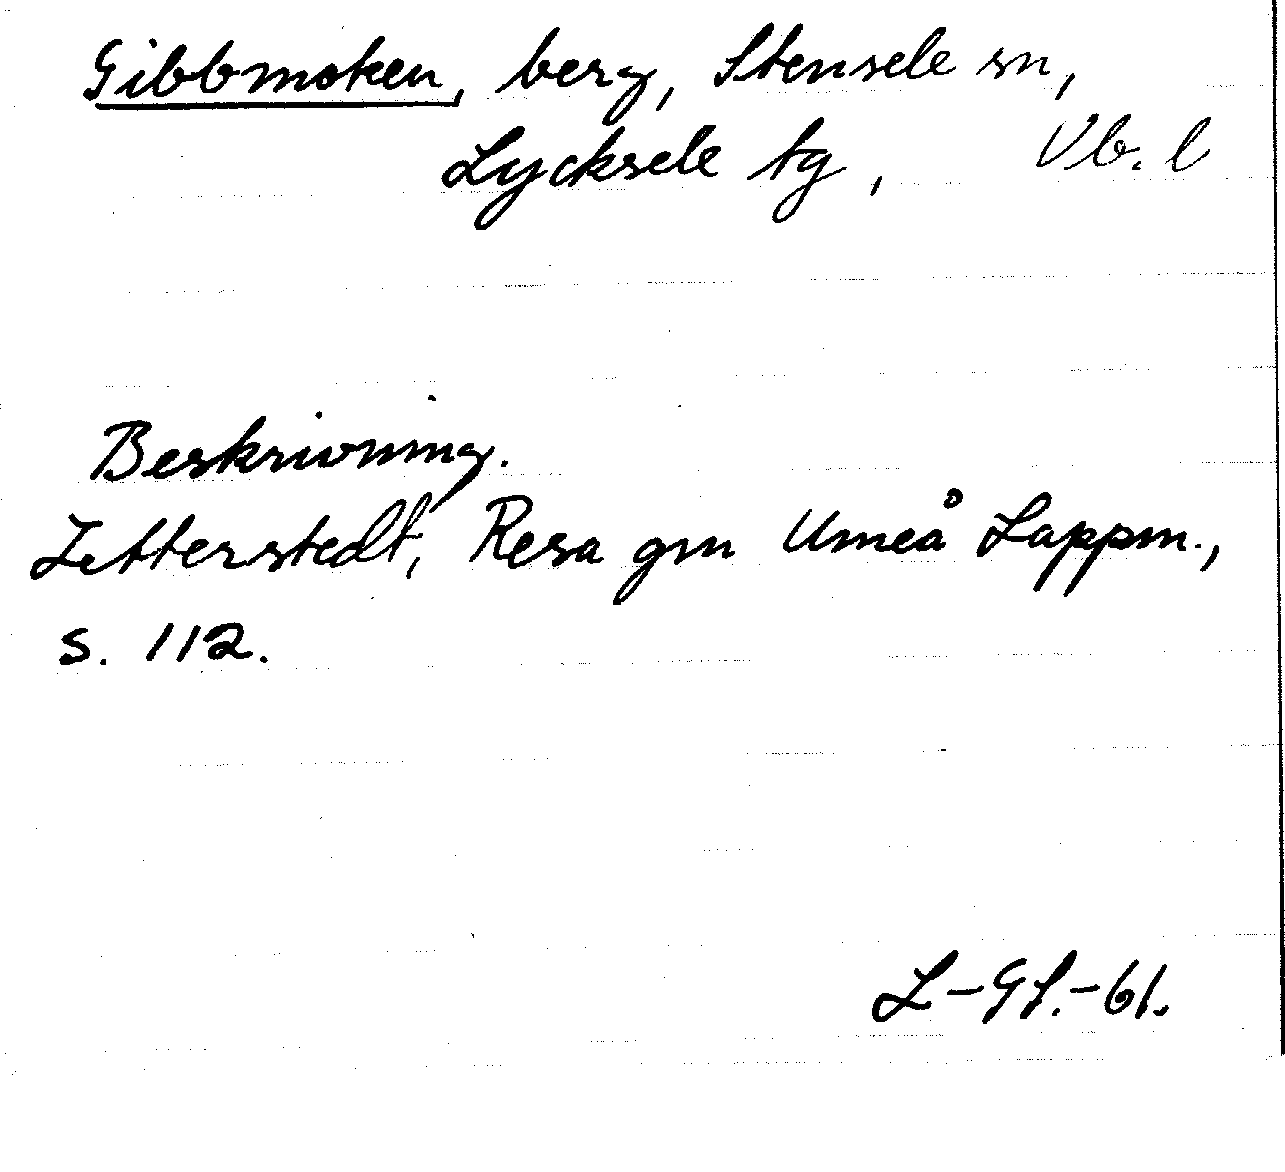 Gibbmoken, berg, Stensele sn,
Lycksele tg, Vb. l
Beskrivning.
Zetterstedt, Resa gm Umeå Lappm.,
s. 112.
L-Gf.-61.